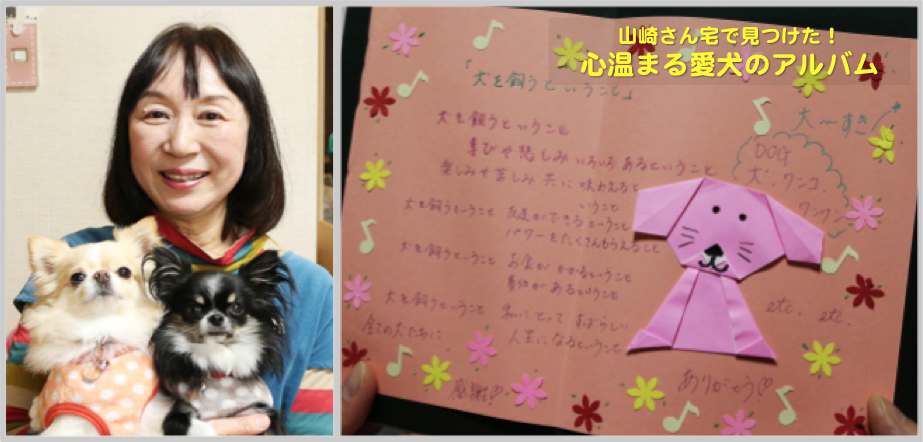 山崎さん宅で見つけた！
心温まる愛犬のアルバム
「犬を飼うということ」
犬を飼うということ
喜びや悲しみいろいろあるということ
楽しみや苦しみ 共に 味わえると
いうこと
犬を飼うということ 友達ができるということ
パワーをたくさんもらえること
犬を飼うということ お金がかかるということ
責任があるということ
犬を飼うということ 私にとって すばらしい
人生になるということ
全ての犬たちに
感謝!!
大〜すき
DOG
犬、ワンコ、
ワンワン
etc. etc.
ありがとう♡